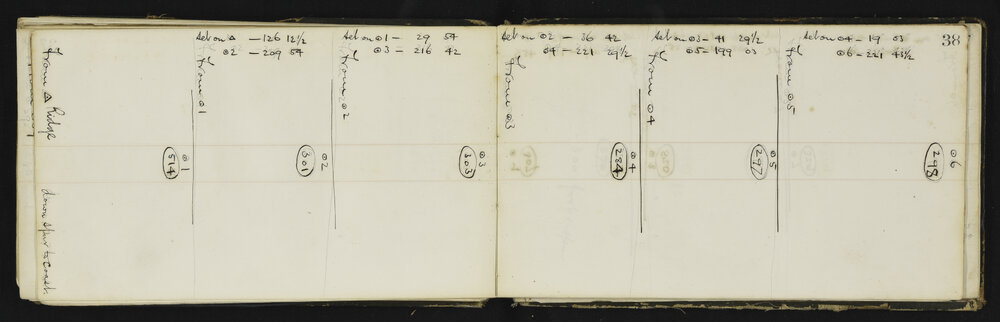 From △ Ridge down spur to Coast
⊙1
514
Set on △ — 126 12½
⊙2 — 209 54
From ⊙1
⊙2
301
Set on ⊙1 — 29 54
⊙3 — 216 42
From ⊙2
⊙3
303
Set on ⊙2 — 36 42
⊙4 — 221 29½
From ⊙3
⊙4
284
Set on ⊙3 — 41 29½
⊙5 — 199 03
From ⊙4
⊙5
297
Set on ⊙4 — 19 03
⊙6 — 221 43½
From ⊙5
⊙6
298
38